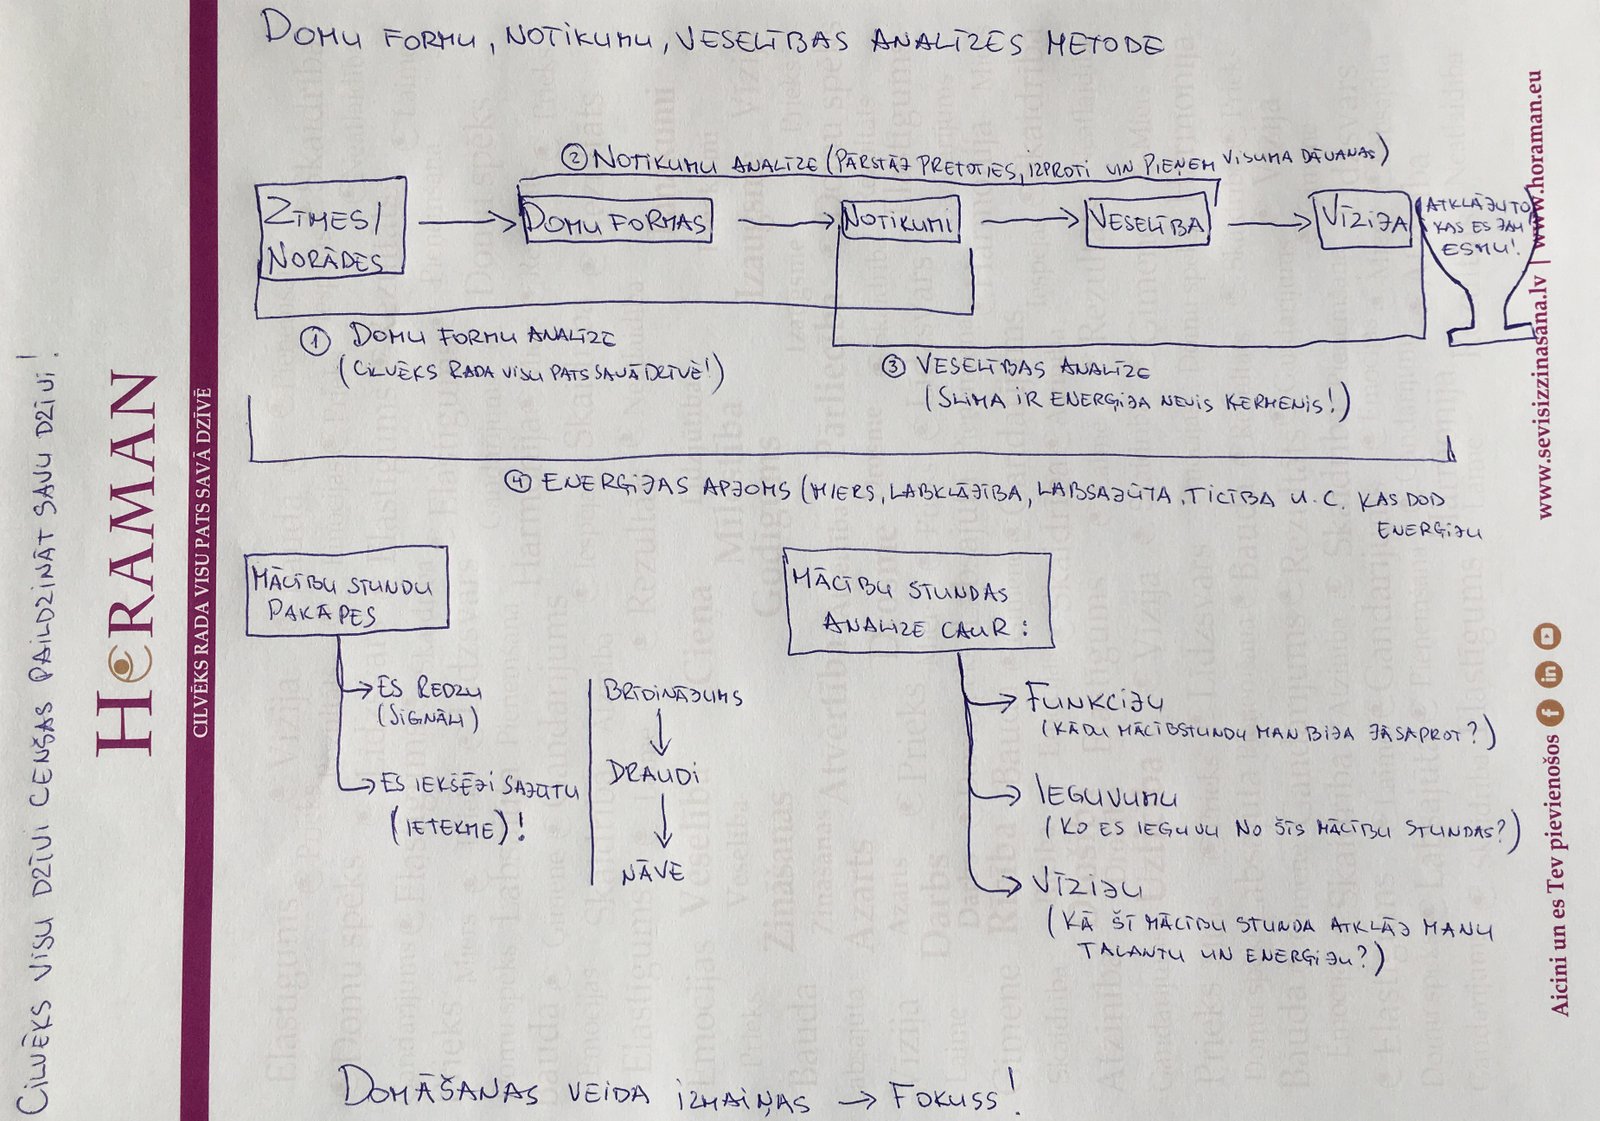 DOMU FORMU, NOTIKUMU, VESELĪBAS ANALĪZES METODE
② NOTIKUMU ANALĪZE (PĀRSTĀJ PRETOTIES, IZPROTI UN PIEŅEM VISUMA DĀVANAS)
ZĪMES/
NORĀDES
DOMU FORMAS
NOTIKUMI
VESELĪBA
VĪZIJA
ATKLĀJU TO
KAS ES JAU
ESMU!
① DOMU FORMU ANALĪZE
(CILVĒKS RADA VISU PATS SAVĀ DZĪVĒ!)
③ VESELĪBAS ANALĪZE
(SLIMA IR ENERĢIJA NEVIS ĶERMENIS!)
④ ENERĢIJAS APJOMS (MIERS, LABKLĀJĪBA, LABSAJŪTA, TICĪBA U.C. KAS DOD
ENERĢIJU
MĀCĪBU STUNDU
PAKĀPES
ES REDZU
(SIGNĀLI)
ES IEKŠĒJI SAJŪTU
(IETEKME)!
BRĪDINĀJUMS
DRAUDI
NĀVE
MĀCĪBU STUNDAS
ANALĪZE CAUR:
FUNKCIJU
(KĀDU MĀCĪBSTUNDU MAN BIJA JĀSAPROT?)
IEGUVUMU
(KO ES IEGUVU NO ŠĪS MĀCĪBU STUNDAS?)
VĪZIJU
(KĀ ŠĪ MĀCĪBU STUNDA ATKLĀJ MANU
TALANTU UN ENERĢIJU?)
DOMĀŠANAS VEIDA IZMAIŅAS → FOKUSS!
CILVĒKS VISU DZĪVI CENŠAS PAILDZINĀT SAVU DZĪVI!
HORAMAN
CILVĒKS RADA VISU PATS SAVĀ DZĪVĒ
www.sevisizzinasana.lv | www.horaman.eu
Aicini un es Tev pievienošos